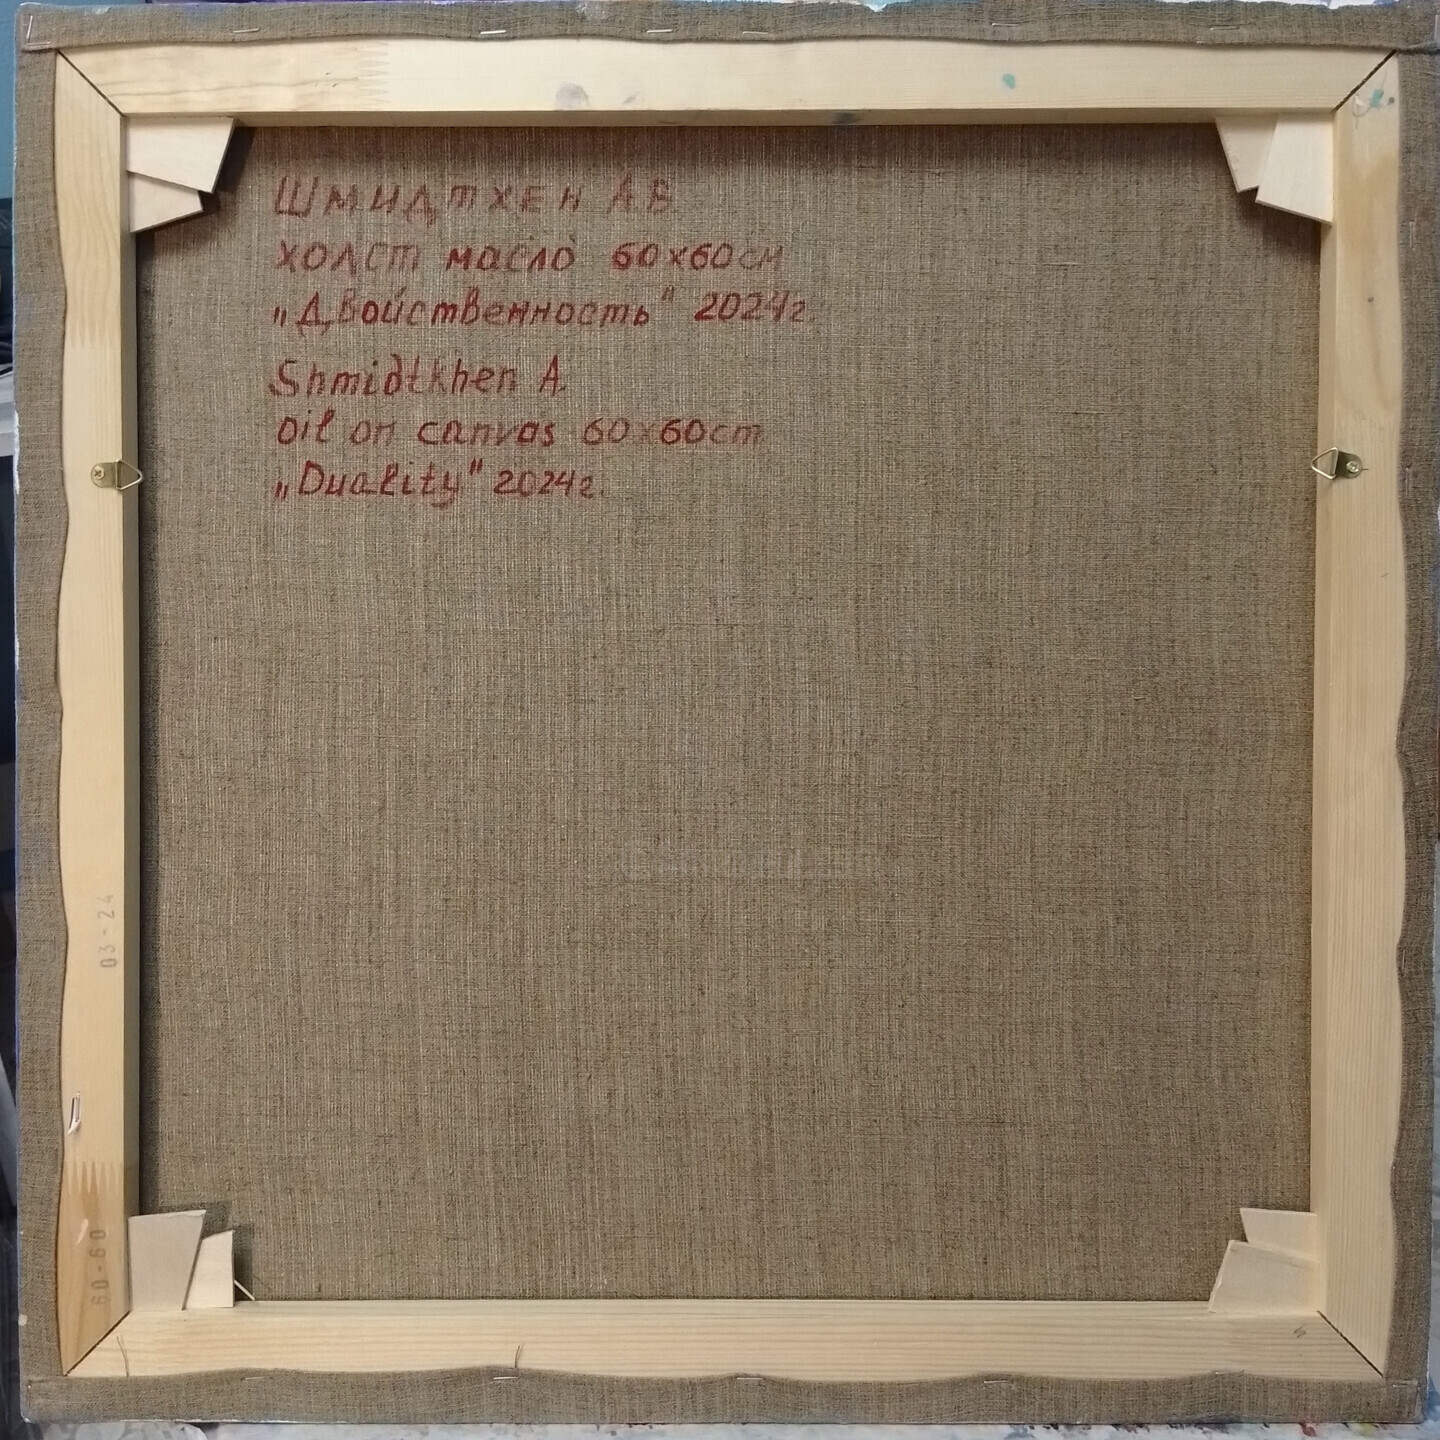 ШМИДТХЕН А.В.
ХОЛСТ МАСЛО 60х60см
„Двойственность" 2024г.
Shmidtkhen A.
oil on canvas 60x60cm
„Duality" 2024г.
03-24
60-60